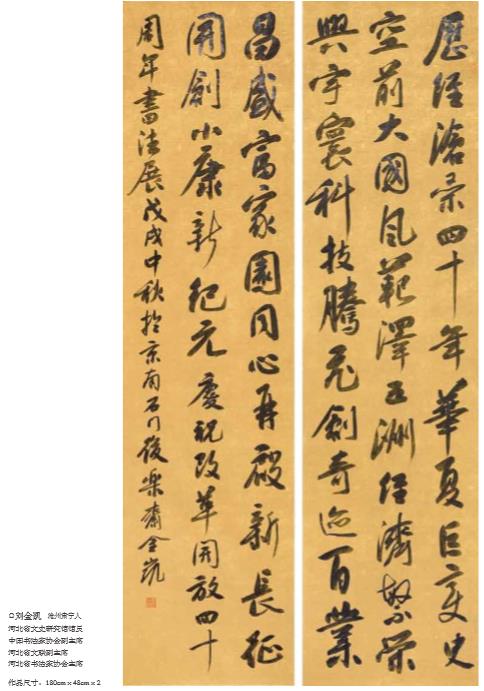 歷經滄桑四十年華夏巨变史
空前大國风範澤五洲經濟繁荣
興宇寰科技騰飛創奇迹百業
昌盛富家園同心再啟新長征
開創小康新纪元慶祝改革開放四十
周年書法展戊戌中秋於京南石门後樂齋金凯
□刘金凯 沧州肃宁人
河北省文史研究馆馆员
中国书法家协会副主席
河北省文联副主席
河北省书法家协会主席
作品尺寸：180cm x 48cm x 2